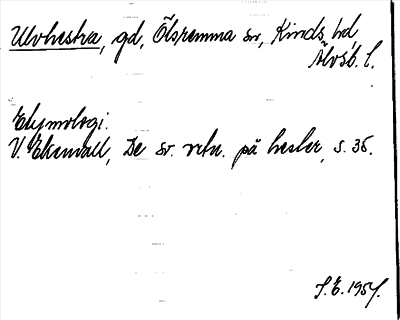 Ulvhestra, gd, Ölsremma sn, Kinds hd,
Älvsb. l.
Etymologi.
V. Ekenvall, De sv. ortn. på hester, s. 36.
S.E. 1954.